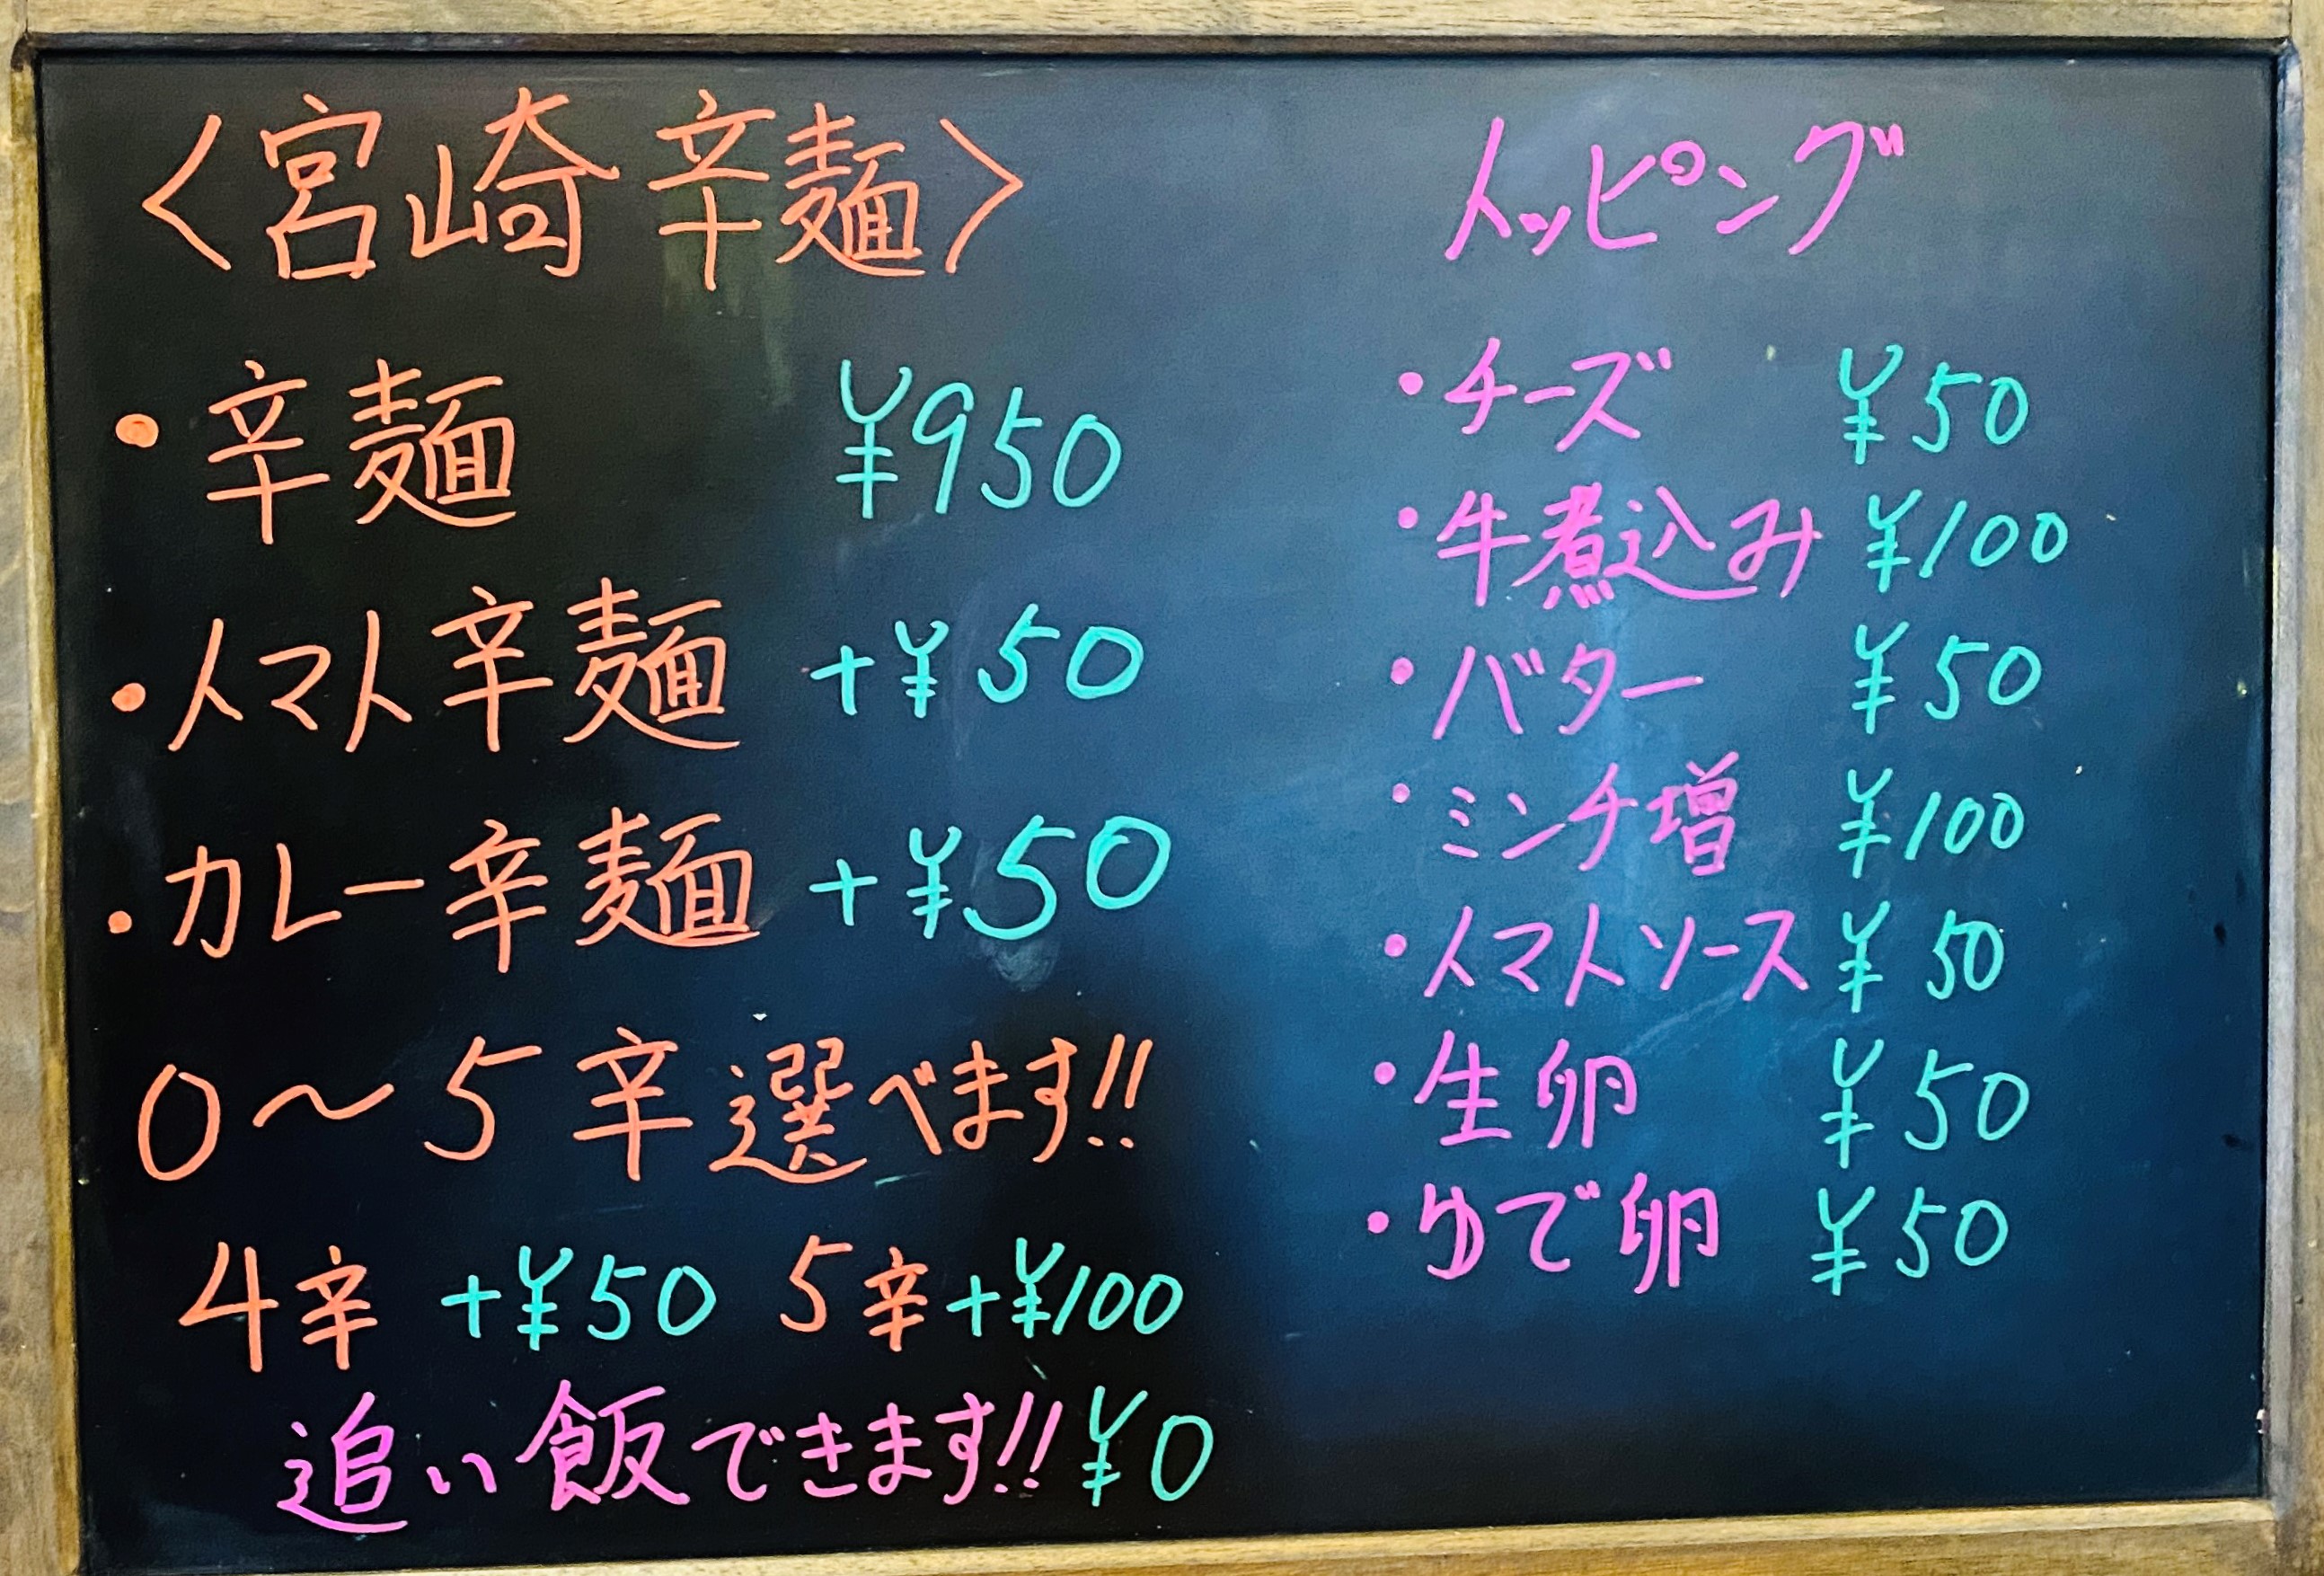 〈宮崎辛麺〉
・辛麺 ¥950
・トマト辛麺 +¥50
・カレー辛麺 +¥50
0〜5辛選べます!!
4辛 +¥50 5辛+¥100
追い飯できます!!¥0
トッピング
・チーズ ¥50
・牛煮込み ¥100
・バター ¥50
・ミンチ増 ¥100
・トマトソース ¥50
・生卵 ¥50
・ゆで卵 ¥50